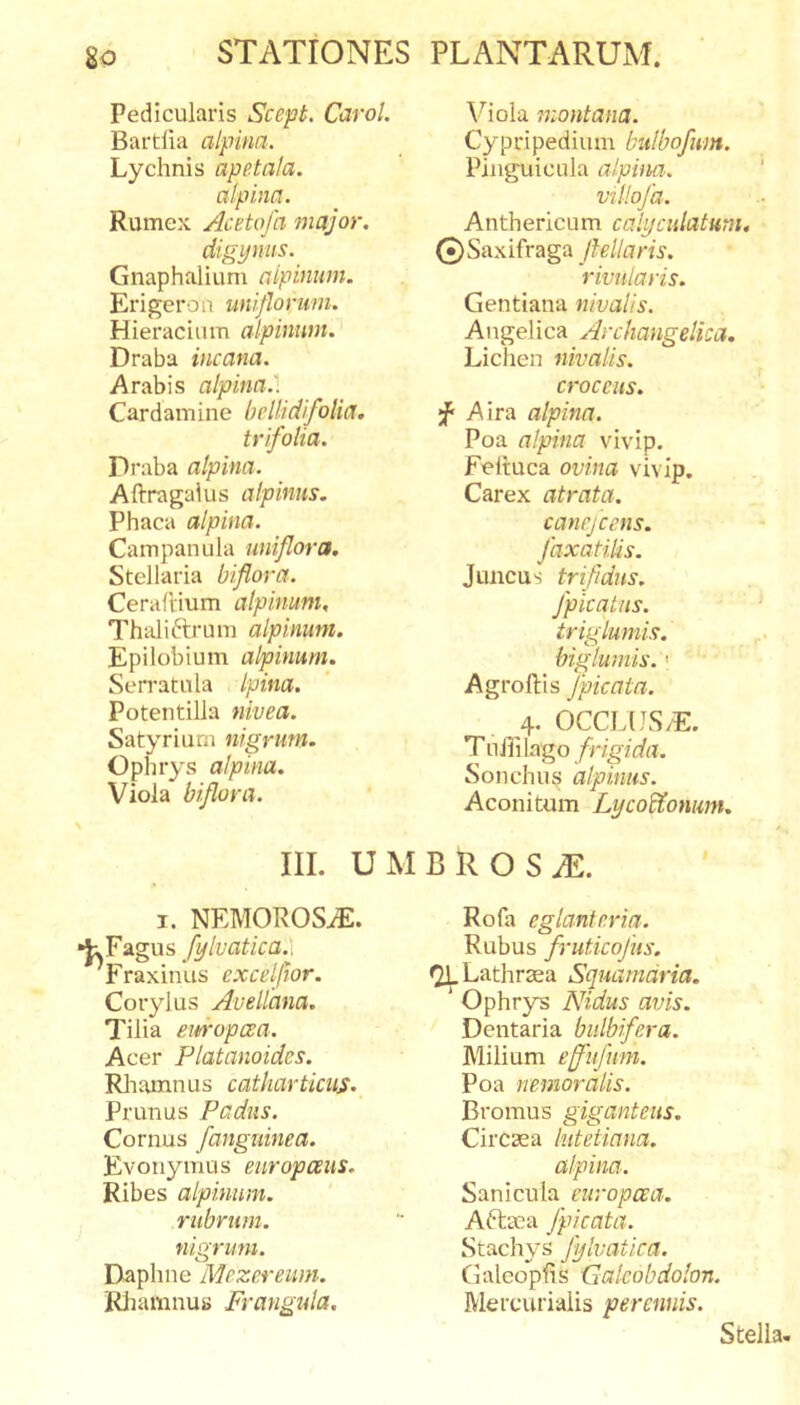 80 STATIONES PLANTARUM.
Pedicularis Scept. Carol.
Bartſia alpina.
Lychnis apetala.
alpina.
Rumex Acetoſa major.
digynus.
Gnaphalium alpinum.
Erigeron uniflorum.
Hieracium alpinum.
Draba incana.
Arabis alpina.
Cardamine bellidifolia.
trifolia.
Draba alpina.
Aſtragalus alpinus.
Phaca alpina.
Campanula uniflora.
Stellaria biflora.
Ceraſtium alpinum.
Thalictrum alpinum.
Epilobium alpinum.
Serratula lpina.
Potentilla nivea.
Satyrium nigrum.
Ophrys alpina.
Viola biflora.
Viola montana.
Cypripedium bulboſum.
Pinguicula alpina.
villoſa.
Anthericum calyculatum.
⊙Saxifraga ſtellaris.
rivularis.
Gentiana nivalis.
Angelica Archangelica.
Lichen nivalis.
croceus.
Aira alpina.
Poa alpina vivip.
Feſtuca ovina vivip.
Carex atrata.
caneſcens.
ſaxatilis.
Juncus trifidus.
ſpicatus.
triglumis.
biglumis.
Agroſtis ſpicata.
4. OCCLUSÆ.
Tuſſilago frigida.
Sonchus alpinus.
Aconitum Lycoctonum.
III. UMBROSÆ.
1. NEMOROSÆ.
Fagus ſylvatica.
Fraxinus excelſior.
Corylus Avellana.
Tilia europæa.
Acer Platanoides.
Rhamnus catharticus.
Prunus Padus.
Cornus ſanguinea.
Evonymus europæus.
Ribes alpinum.
rubrum.
nigrum.
Daphne Mezereum.
Rhamnus Frangula.
Roſa eglanteria.
Rubus fruticoſus.
♃Lathræa Squamaria.
Ophrys Nidus avis.
Dentaria bulbifera.
Milium effuſum.
Poa nemoralis.
Bromus giganteus.
Circæa lutetiana.
alpina.
Sanicula europæa.
Actæa ſpicata.
Stachys ſylvatica.
Galeopſis Galeobdolon.
Mercurialis perennis.
Stella-